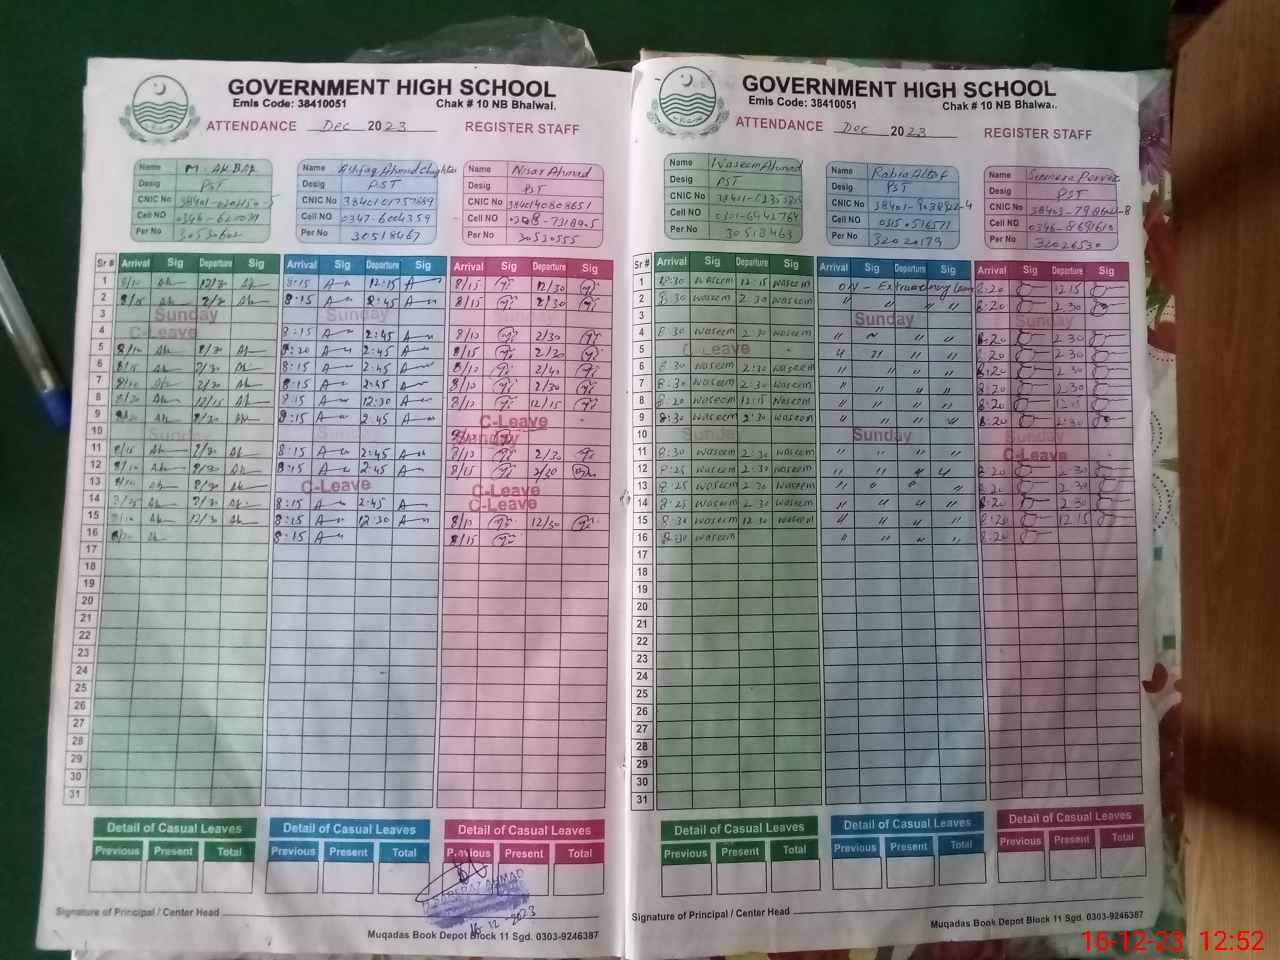 GOVERNMENT HIGH SCHOOL
Emis Code: 38410051 Chak # 10 NB Bhalwal.
ATTENDANCE Dec 2023 REGISTER STAFF
Name M. AKBAR
Desig PST
CNIC No
Cell NO
Per No
Name Ashfaq Ahmad Chughtai
Desig PST
CNIC No
Cell NO 0347-6004359
Per No 30518467
Name Nisar Ahmad
Desig PST
CNIC No 3840140808651
Cell NO
Per No 30530555
Sr # Arrival Sig Departure Sig Arrival Sig Departure Sig Arrival Sig Departure Sig
1 8/10 12/30 8:15 12:15 8/15 12/30
2 8/15 2/30 8:15 2:45 8/15 2/30
3 Sunday
4 C-Leave 8:15 2:45 8/10 2/30
5 8/10 2/30 8:20 2:45 8/15 2/30
6 8/15 2/30 8:15 2:45 8/10 2/40
7 8/10 2/30 8:15 2:45 8/10 2/30
8 8/20 12/15 8:15 12:30 8/10 12/15
9 8/20 2/30 8:15 2:45 C-Leave
10 Sunday Sunday Sunday
11 8/15 2/30 8:15 2:45 8/10 2/30
12 8/10 2/30 8:15 2:45 8/15 2/30
13 8/10 2/30 C-Leave C-Leave
14 2/30 8:15 2:45 C-Leave
15 8/10 12/30 8:15 12:30 8/10 12/30
16 8/20 8:15 8/15
17
18
19
20
21
22
23
24
25
26
27
28
29
30
31
Detail of Casual Leaves Detail of Casual Leaves Detail of Casual Leaves
Previous Present Total Previous Present Total Previous Present Total
AHMAD
16-12-2023
Signature of Principal / Center Head
Muqadas Book Depot Block 11 Sgd. 0303-9246387
GOVERNMENT HIGH SCHOOL
Emis Code: 38410051 Chak # 10 NB Bhalwa..
ATTENDANCE Dec 2023 REGISTER STAFF
Name Waseem Ahmad
Desig PST
CNIC No
Cell NO 0301-6442764
Per No 30518463
Name Rabia Altaf
Desig PST
CNIC No
Cell NO 0315 0516571
Per No 32020179
Name Sumera Parvez
Desig PST
CNIC No
Cell NO
Per No 32026530
Sr # Arrival Sig Departure Sig Arrival Sig Departure Sig Arrival Sig Departure Sig
1 8:30 waseem 12:15 waseem ON - Extraordinary Leave 8:20 12:15
2 8:30 waseem 2:30 waseem " " " " 8:20 2:30
3 Sunday Sunday
4 8:30 waseem 2:30 waseem " " " " 8:20 2:30
5 C Leave " " " " 8:20 2:30
6 8:30 waseem 2:30 waseem " " " " 8:20 2:30
7 8:30 waseem 2:30 waseem " " " " 8:20 2:30
8 8:20 waseem 12:15 waseem " " " " 8:20 12:15
9 8:30 waseem 2:30 waseem " " " " 8:20 2:30
10 Sunday Sunday Sunday
11 8:30 waseem 2:30 waseem " " " " C-Leave
12 8:25 waseem 2:30 waseem " " " " 8:20 2:30
13 8:25 waseem 2:30 waseem " " " " 8:20 2:30
14 8:25 waseem 2:30 waseem " " " " 8:20 2:30
15 8:30 waseem 12:30 waseem " " " " 8:20 12:15
16 8:30 waseem " " " " 8:20
17
18
19
20
21
22
23
24
25
26
27
28
29
30
31
Detail of Casual Leaves Detail of Casual Leaves Detail of Casual Leaves
Previous Present Total Previous Present Total Previous Present Total
Signature of Principal / Center Head
Muqadas Book Depot Block 11 Sgd. 0303-9246387
16-12-23 12:52